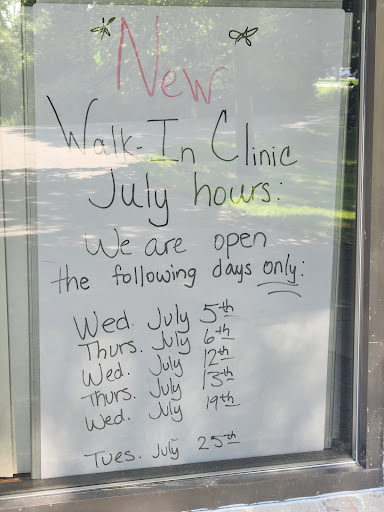 New
Walk-In Clinic
July hours:
We are open
the following days only:
Wed. July 5th
Thurs. July 6th
Wed. July 12th
Thurs. July 13th
Wed. July 19th
Tues. July 25th